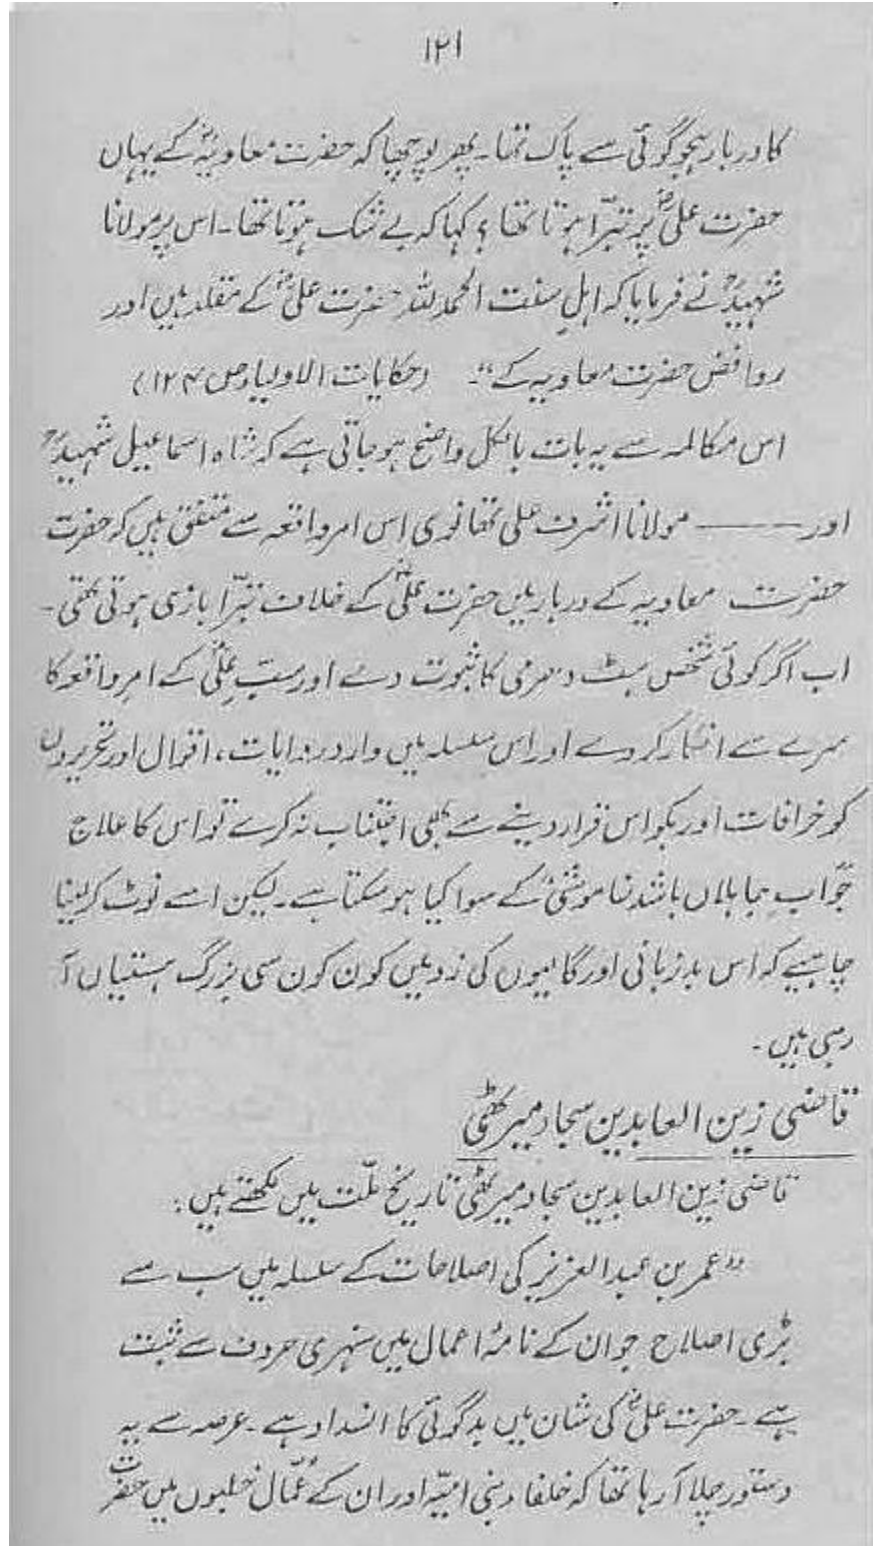 ۱۲۱
کا دربار ہجو گوئی سے پاک تھا۔ پھر پوچھا کہ حضرت معاویہؓ کے یہاں
حضرت علیؓ پر تبرّا ہوتا تھا؟ کہا کہ بے شک ہوتا تھا۔ اس پر مولانا
شہیدؒ نے فرمایا کہ اہلِ سنت الحمد للہ حضرت علیؓ کے مقلد ہیں اور
روافض حضرت معاویہ کے“۔ (حکایات الاولیاء ص ۱۲۴)
اس مکالمہ سے یہ بات بالکل واضح ہو جاتی ہے کہ شاہ اسماعیل شہیدؒ
اور ——— مولانا اشرف علی تھانوی اس امر واقعہ سے متفق ہیں کہ حضرت
حضرت معاویہ کے دربار میں حضرت علیؓ کے خلاف تبرّا بازی ہوتی تھی۔
اب اگر کوئی شخص ہٹ دھرمی کا ثبوت دے اور سبِّ علیؓ کے امرِ واقعہ کا
سرے سے انکار کر دے اور اس سلسلہ میں وارد روایات، اقوال اور تحریروں
کو خرافات اور بکواس قرار دینے سے بھی اجتناب نہ کرے تو اس کا علاج
”جوابِ جاہلاں باشد خاموشی“ کے سوا کیا ہو سکتا ہے۔ لیکن اسے نوٹ کر لینا
چاہیے کہ اس بد زبانی اور گالیوں کی زد میں کون کون سی بزرگ ہستیاں آ
رہی ہیں۔
قاضی زین العابدین سجاد میرٹھیؒ
قاضی زین العابدین سجاد میرٹھیؒ تاریخ ملّت میں لکھتے ہیں:
”عمر بن عبد العزیز کی اصلاحات کے سلسلہ میں سب سے
بڑی اصلاح جو ان کے نامۂ اعمال میں سنہری حروف سے ثبت
ہے۔ حضرت علیؓ کی شان میں بدگوئی کا انسداد ہے۔ عرصہ سے یہ
دستور چلا آ رہا تھا کہ خلفاء بنی امیّہ اور ان کے عُمّال خطبوں میں حضرت